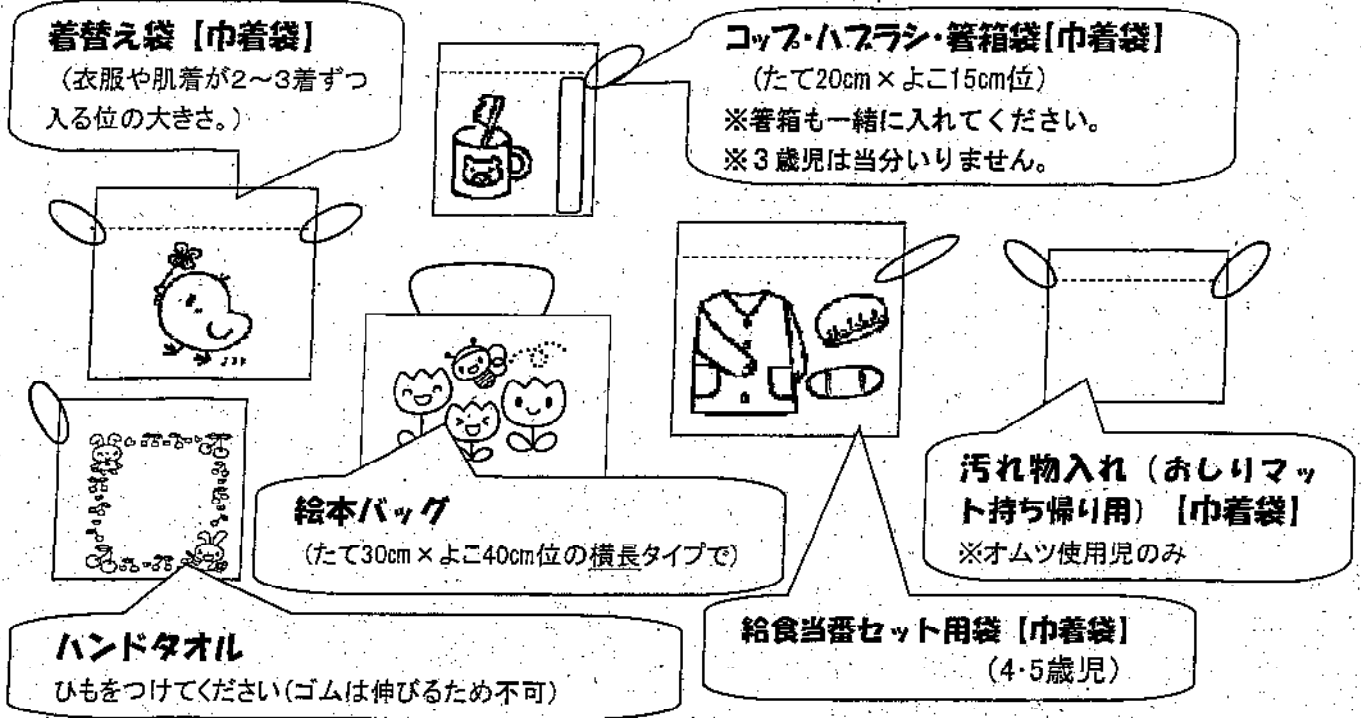 着替え袋【巾着袋】
(衣服や肌着が2~3着ずつ
入る位の大きさ。)
コップ・ハブラシ・箸箱袋【巾着袋】
(たて20cm×よこ15cm位)
※箸箱も一緒に入れてください。
※3歳児は当分いりません。
絵本バッグ
(たて30cm×よこ40cm位の横長タイプで)
汚れ物入れ(おしりマッ
ト持ち帰り用)【巾着袋】
※オムツ使用児のみ
ハンドタオル
ひもをつけてください(ゴムは伸びるため不可)
給食当番セット用袋【巾着袋】
(4・5歳児)